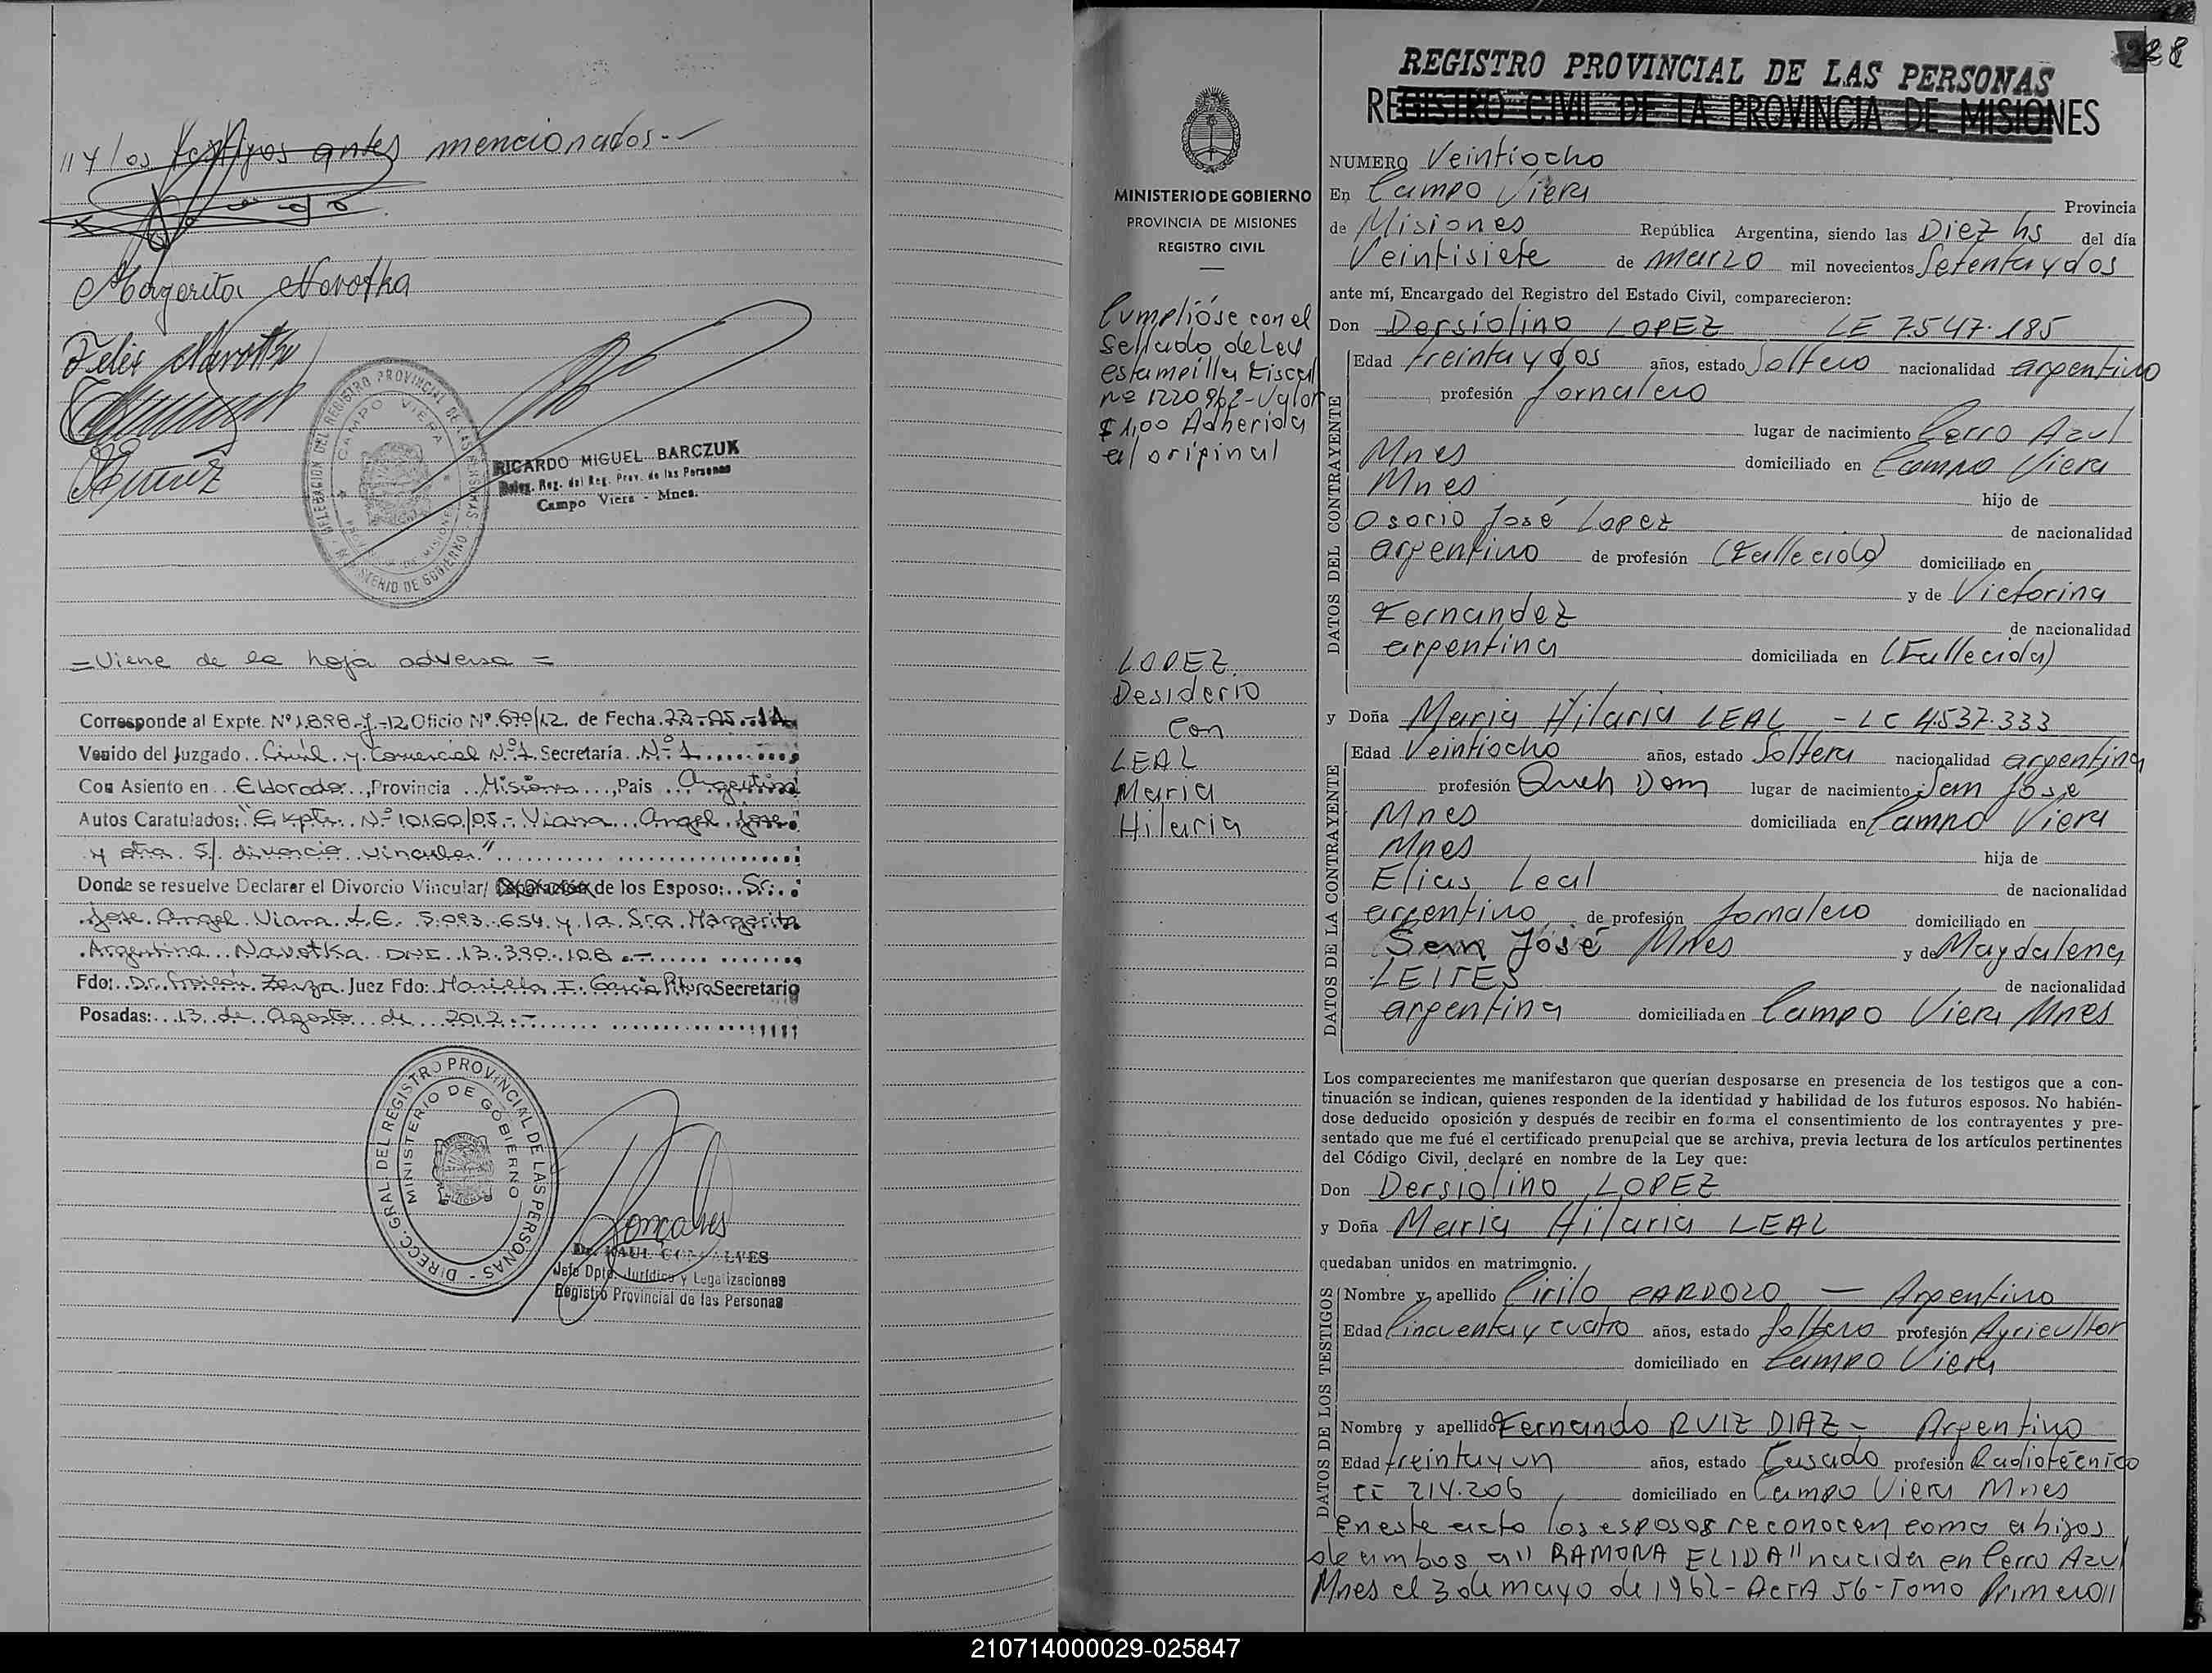 // y los testigos antes mencionados.-
Margarita Navotka
Felix Navotka
RICARDO MIGUEL BARCZUK
Deleg. Reg. del Reg. Prov. de las Personas
Campo Viera - Mnes.
DELEGACION DEL REGISTRO PROVINCIAL DE LAS PERSONAS
CAMPO VIERA
MINISTERIO DE GOBIERNO
= Viene de la hoja adversa =
Corresponde al Expte. Nº 1898-J-12 Oficio Nº 670/12. de Fecha 23-05-12
Venido del Juzgado Civil y Comercial Nº 1 Secretaría Nº 1
Con Asiento en Eldorado, Provincia Misiones, Pais Argentina
Autos Caratulados: "Expte. Nº 10160/05.- Viana Angel Jose
y otra S/ divorcio vincular"
Donde se resuelve Declarar el Divorcio Vincular/ Separación de los Esposo: Sr.
Jose Angel Viana L.E. 5.093.654 y la Sra. Margarita
Argentina Navotka DNI 13.390.106.-
Fdo: Dr. Juez Fdo: Mariela I. García Secretario
Posadas: 13 de Agosto de 2012.-
DIRECC. GRAL DEL REGISTRO PROVINCIAL DE LAS PERSONAS
MINISTERIO DE GOBIERNO
Goncalves
Dr. RAUL GONCALVES
Jefe Dpto. Jurídico y Legalizaciones
Registro Provincial de las Personas
228
REGISTRO PROVINCIAL DE LAS PERSONAS
REGISTRO CIVIL DE LA PROVINCIA DE MISIONES
MINISTERIO DE GOBIERNO
PROVINCIA DE MISIONES
REGISTRO CIVIL
Cumplióse con el
Sellado de Ley
estampilla Fiscal
nº 1220962-Valor
$ 1,00 Adherida
al original
LOPEZ
Desiderio
Con
LEAL
Maria
Hilaria
NUMERO Veintiocho
En Campo Viera Provincia
de Misiones República Argentina, siendo las Diez hs del día
Veintisiete de marzo mil novecientos Setenta y dos
ante mí, Encargado del Registro del Estado Civil, comparecieron:
Don Dersiolino LOPEZ LE 7.547.185
DATOS DEL CONTRAYENTE
Edad treinta y dos años, estado Soltero nacionalidad argentino
profesión Jornalero
lugar de nacimiento Cerro Azul
Mnes domiciliado en Campo Viera
Mnes hijo de
Osorio José Lopez de nacionalidad
argentino de profesión (Fallecido) domiciliado en
y de Victorina
Fernandez de nacionalidad
argentina domiciliada en (Fallecida)
y Doña Maria Hilaria LEAL - LC 4.537.333
DATOS DE LA CONTRAYENTE
Edad Veintiocho años, estado Soltera nacionalidad argentina
profesión Queh Dom lugar de nacimiento San José
Mnes domiciliada en Campo Viera
Mnes hija de
Elias Leal de nacionalidad
argentino de profesión Jornalero domiciliado en
San José Mnes y de Magdalena
LEITES de nacionalidad
argentina domiciliada en Campo Viera Mnes
Los comparecientes me manifestaron que querían desposarse en presencia de los testigos que a con-
tinuación se indican, quienes responden de la identidad y habilidad de los futuros esposos. No habién-
dose deducido oposición y después de recibir en forma el consentimiento de los contrayentes y pre-
sentado que me fué el certificado prenupcial que se archiva, previa lectura de los artículos pertinentes
del Código Civil, declaré en nombre de la Ley que:
Don Dersiolino LOPEZ
y Doña Maria Hilaria LEAL
quedaban unidos en matrimonio.
DATOS DE LOS TESTIGOS
Nombre y apellido Cirilo CARDOZO — Argentino
Edad Cincuenta y cuatro años, estado Soltero profesión Agricultor
domiciliado en Campo Viera
Nombre y apellido Fernando RUIZ DIAZ - Argentino
Edad treinta y un años, estado Casado profesión Radiotécnico
CI 214.206 domiciliado en Campo Viera Mnes
En este acto los esposos reconocen como a hijos
de ambos a "RAMONA ELIDA" nacida en Cerro Azul
Mnes el 3 de mayo de 1962 - ACTA 56 - Tomo Primero //
210714000029-025847